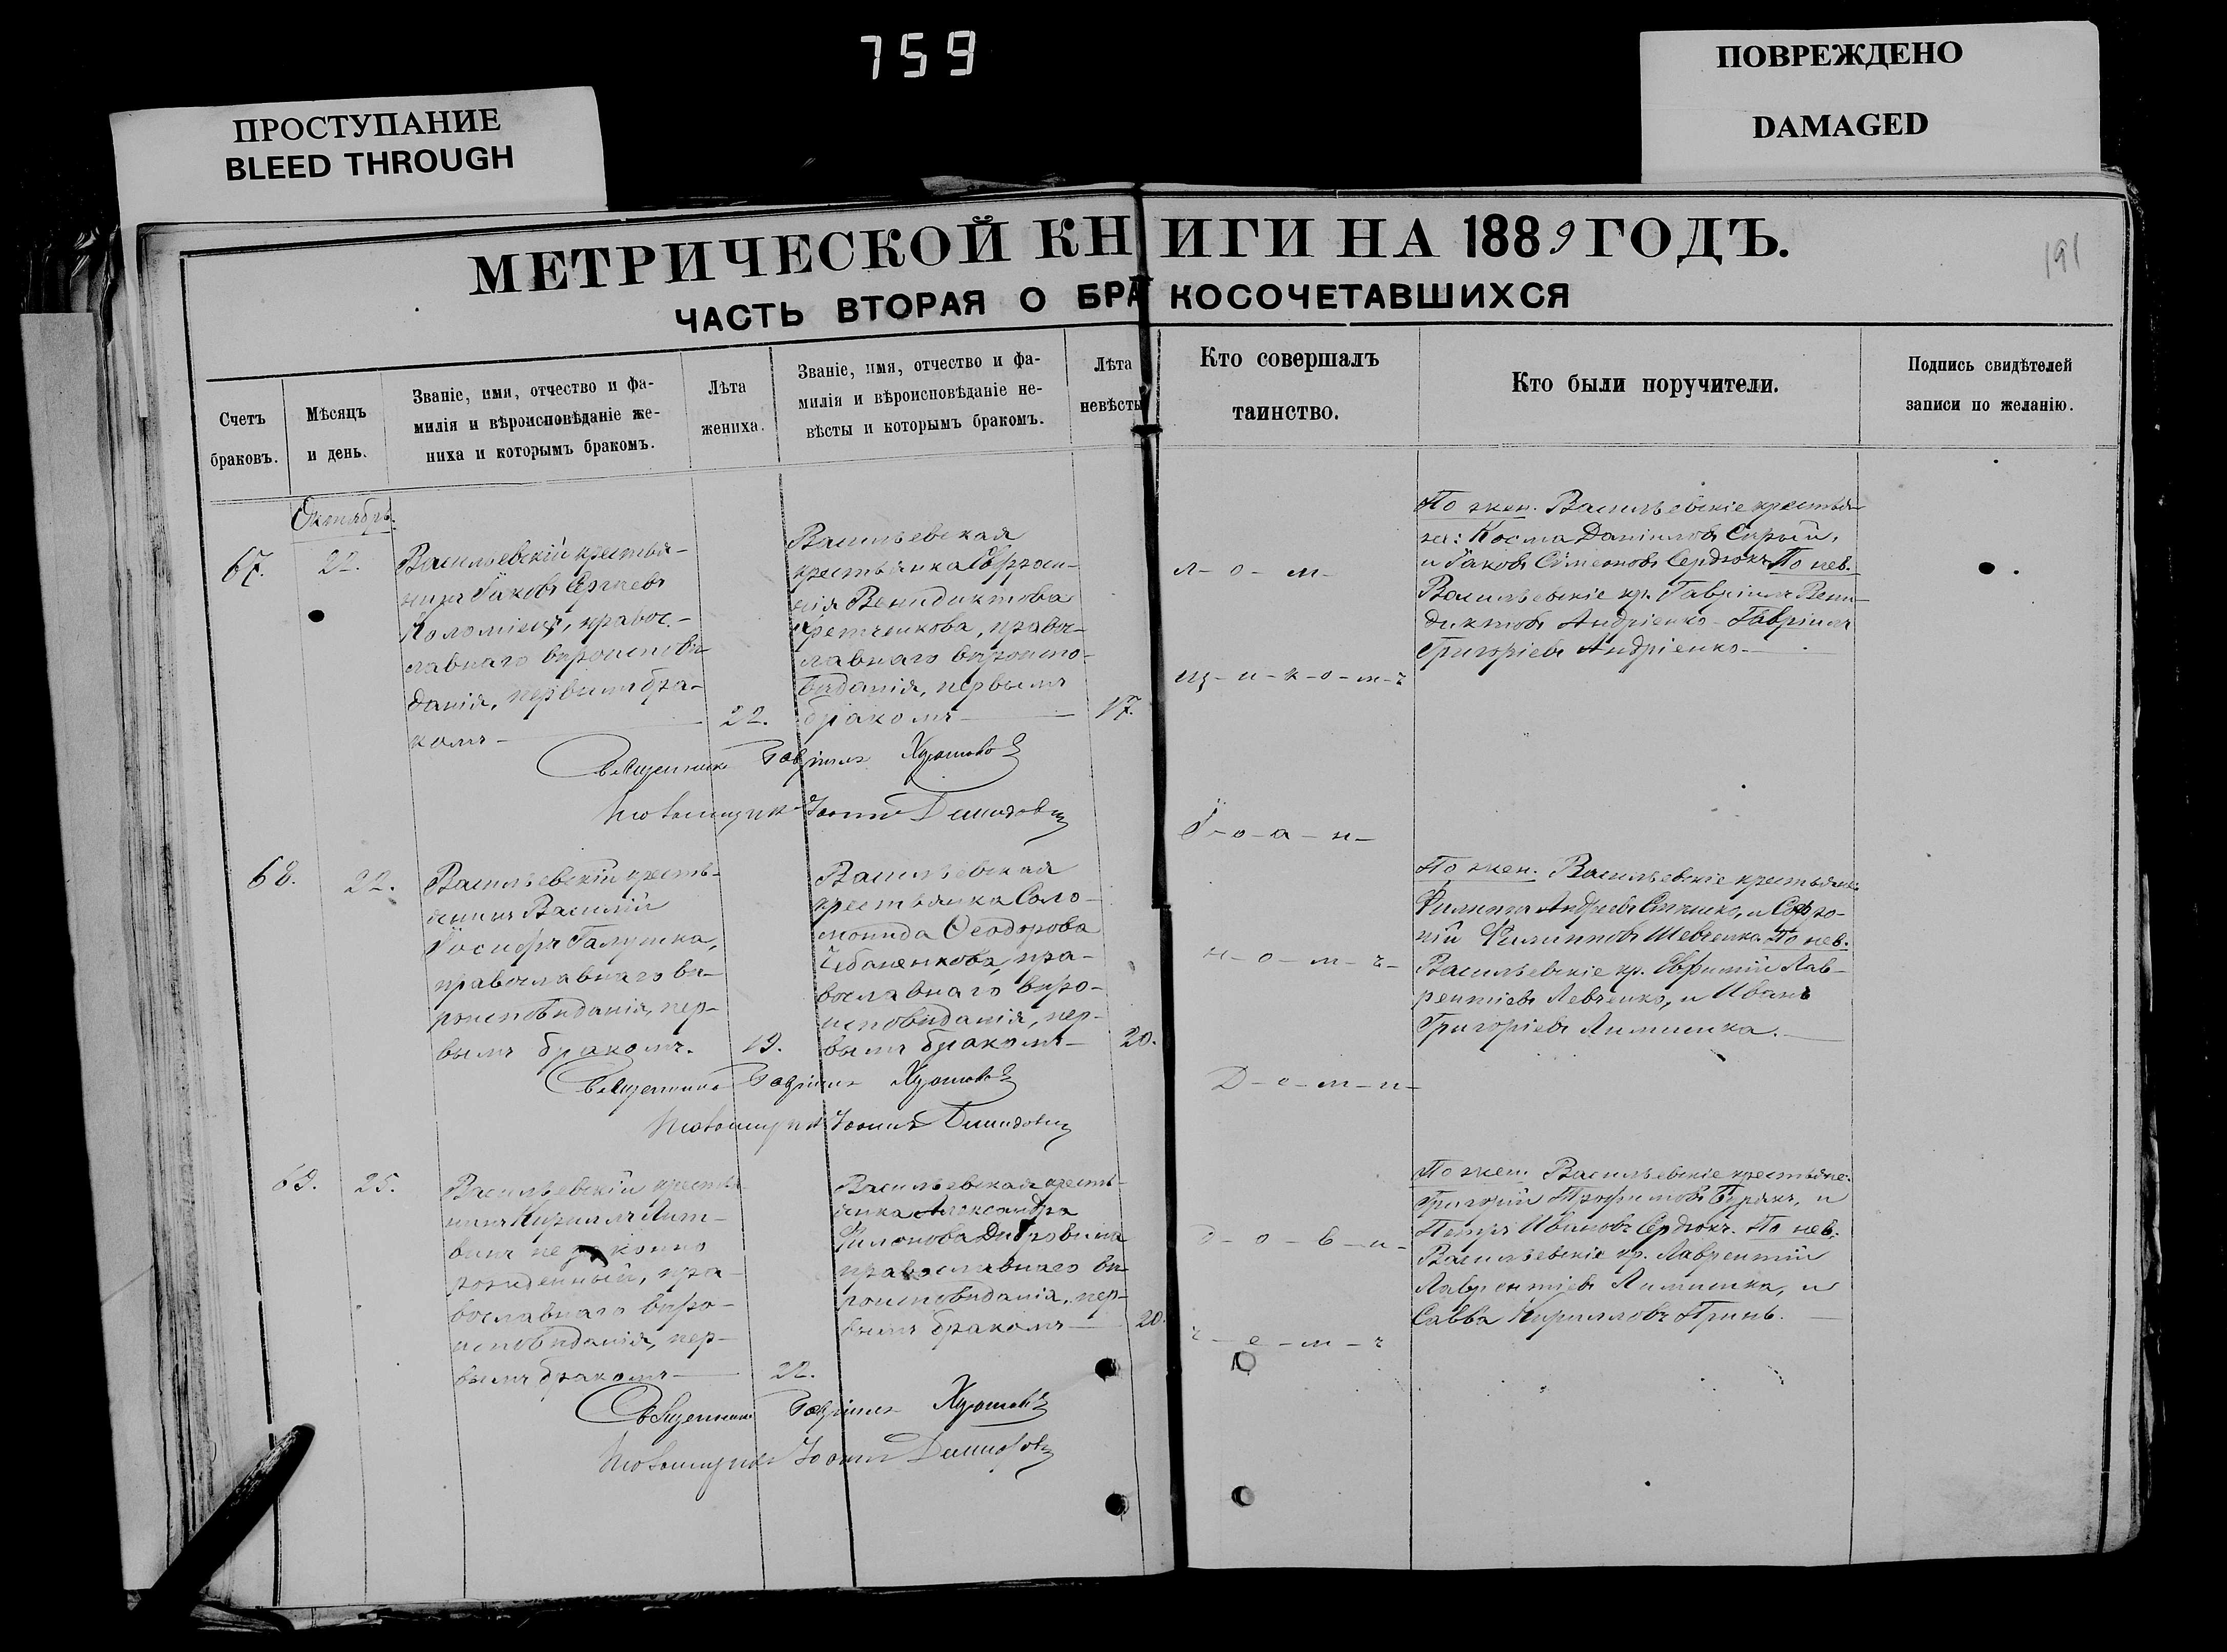 759
ПРОСТУПАНИЕ
BLEED THROUGH
ПОВРЕЖДЕНО
DAMAGED
МЕТРИЧЕСКОЙ КНИГИ НА 1889 ГОДЪ.
191
ЧАСТЬ ВТОРАЯ О БРАКОСОЧЕТАВШИХСЯ
Счетъ
браковъ.
Мѣсяцъ
и день.
Званіе, имя, отчество и фа-
милія и вѣроисповѣданіе же-
ниха и которымъ бракомъ.
Лѣта
жениха.
Званіе, имя, отчество и фа-
милія и вѣроисповѣданіе не-
вѣсты и которымъ бракомъ.
Лѣта
невѣсты
Кто совершалъ
таинство.
Кто были поручители.
Подпись свидѣтелей
записи по желанію.
Октябрь.
67.
22.
Васильевскій крестья-
нинъ Іаковъ Сергіевъ
Коломіецъ, правос-
лавнаго вѣроисповѣ-
данія, первымъ бра-
комъ
22.
Васильевская
крестьянка Евфроси-
нія Венидиктова
православнаго
вѣроиспо-
вѣданія, первымъ
бракомъ
17.
л-о-м-
щ-и-к-о-м-ъ
По жен. Васильевскіе крестья-
не: Косма Даніиловъ Сирый,
и Іаковъ Симеоновъ Сердюкъ. По нев.
Васильевскіе кр. Гавріилъ Вени-
диктовъ Андріенко - Гавріилъ
Григоріевъ Андріенко
Священникъ Гавріилъ
Іоаннъ
68.
22.
Васильевскій кресть-
янинъ Василій
Іосифъ Галушка,
православнаго вѣ-
роисповѣданія, пер-
вымъ бракомъ.
19.
Васильевская
крестьянка Соло-
монида Ѳеодорова
Чабаненкова, пра-
вославнаго вѣро-
исповѣданія, пер-
вымъ бракомъ
20.
І-о-а-н-
н-о-м-ъ-
Д-е-м-и-
По жен. Васильевскіе крестьяне:
Филиппъ Андреевъ и Софро-
ній Филипповъ Шевченко. По нев.
Васильевскіе кр. Евфимій Лав-
рентіевъ Левченко, и Иванъ
Григоріевъ
Священникъ Гавріилъ
Іоаннъ
69.
25.
Васильевскій крестья-
нинъ Кириллъ Лит-
винъ не законно
рожденный, пра-
вославнаго вѣро-
исповѣданія, пер-
вымъ бракомъ
22.
Васильевская кресть-
янка Александра
Филонова
православнаго вѣ-
роисповѣданія, пер-
вымъ бракомъ
20.
д-о-в-и-
ч-е-м-ъ
По жен. Васильевскіе крестьяне:
Григорій Трофимовъ Бурякъ, и
Петръ Ивановъ Сердюкъ. По нев.
Васильевскіе кр. Лаврентій
Лаврентіевъ и
Савва Кирилловъ
Священникъ Гавріилъ
Іоаннъ